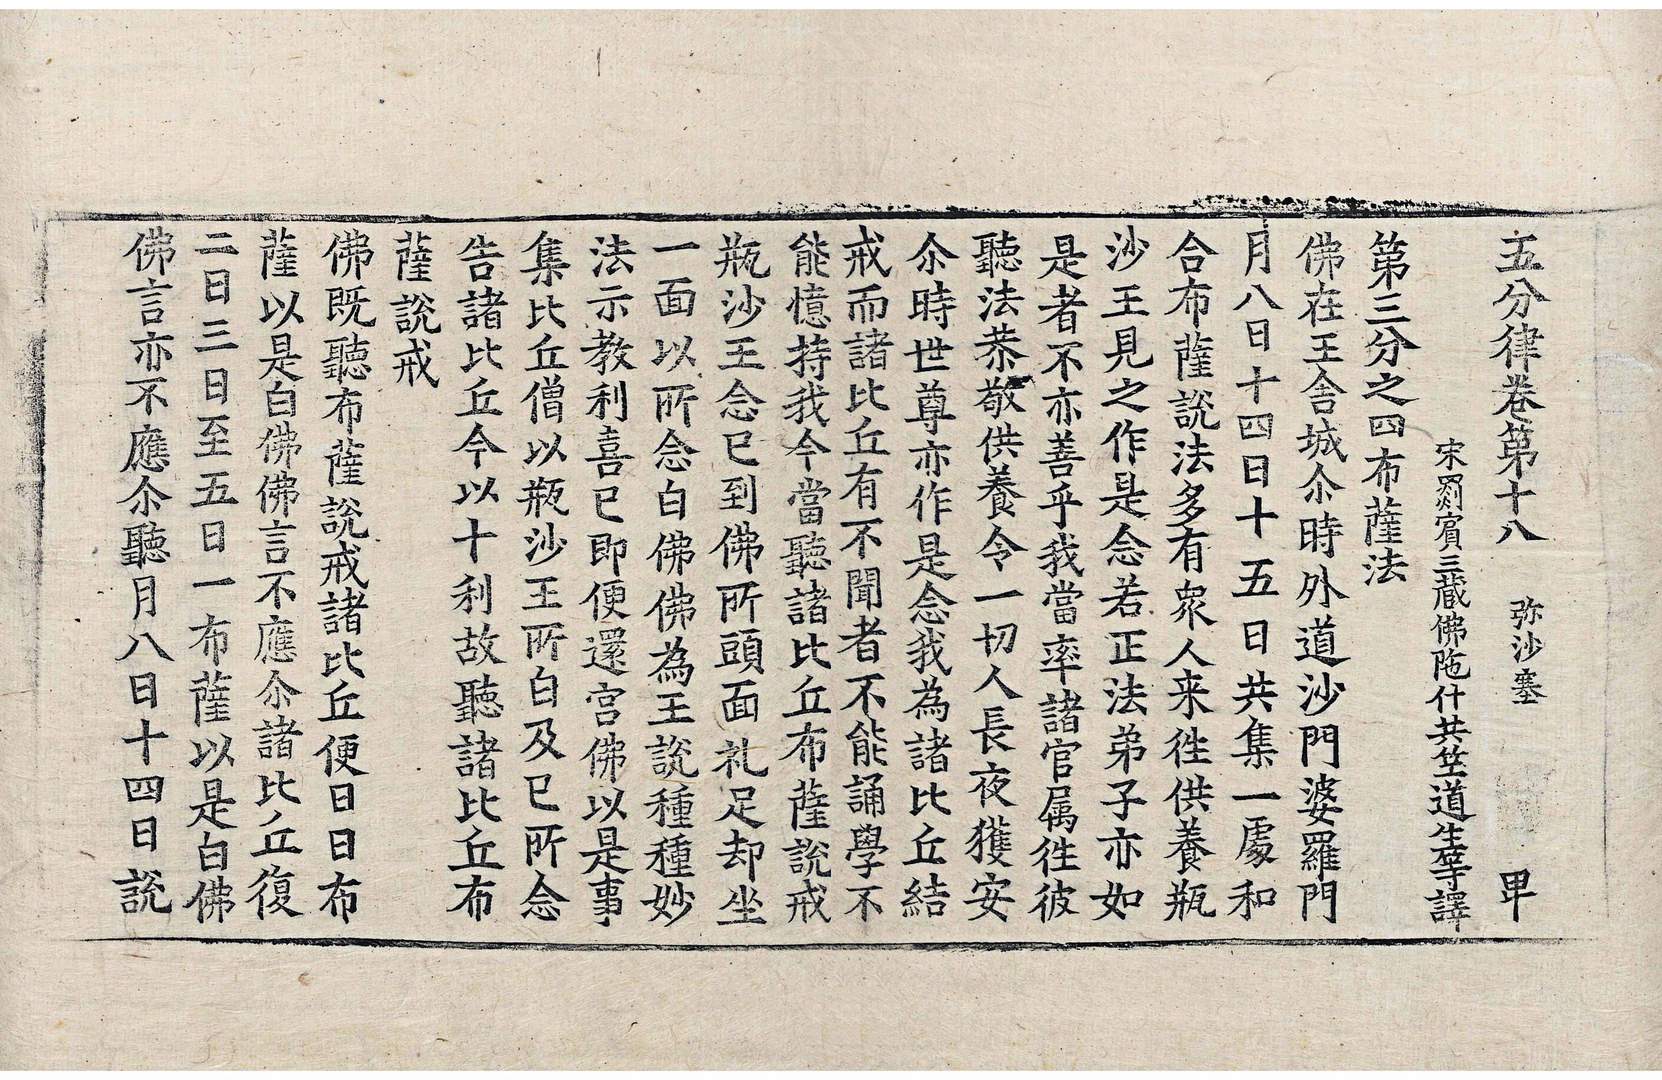 五分律卷第十八 弥沙塞 甲
宋罽賓三藏佛陁什共竺道生等譯
第三分之四布薩法
佛在王舍城尒時外道沙門婆羅門
月八日十四日十五日共集一處和
合布薩說法多有衆人来徃供養瓶
沙王見之作是念若正法弟子亦如
是者不亦善乎我當率諸官属徃彼
聽法恭敬供養令一切人長夜獲安
尒時世尊亦作是念我為諸比丘結
戒而諸比丘有不聞者不能誦學不
能憶持我今當聽諸比丘布薩說戒
瓶沙王念已到佛所頭面礼足却坐
一面以所念白佛佛為王說種種妙
法示教利喜已即便還宮佛以是事
集比丘僧以瓶沙王所白及已所念
告諸比丘今以十利故聽諸比丘布
薩說戒
佛既聽布薩說戒諸比丘便日日布
薩以是白佛佛言不應尒諸比丘復
二日三日至五日一布薩以是白佛
佛言亦不應尒聽月八日十四日說